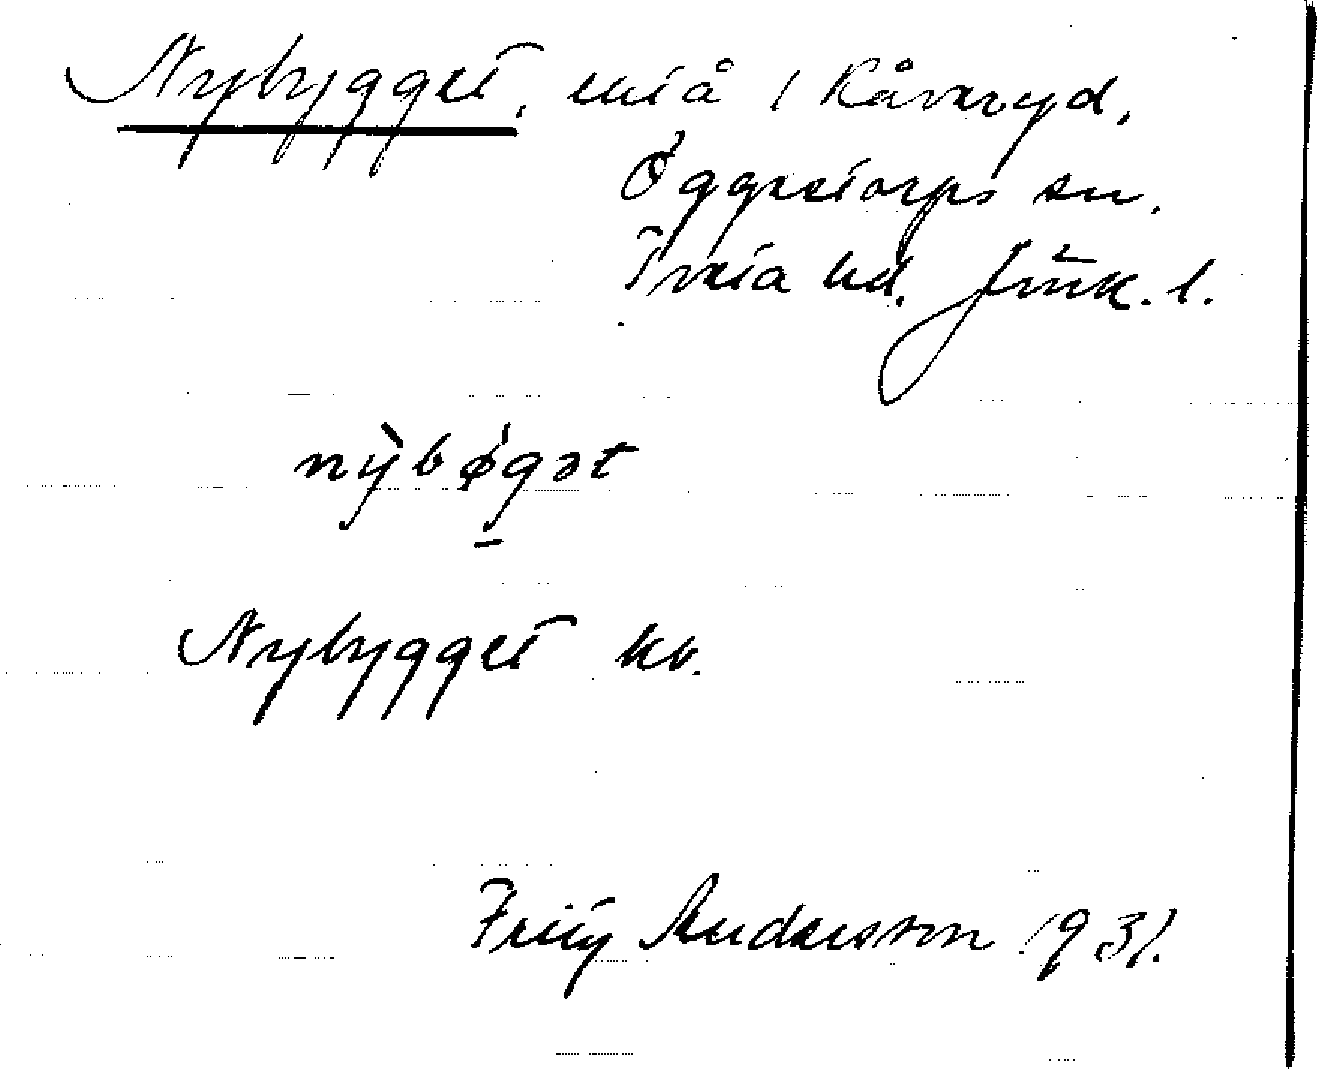 Nybygget, små i Råveryd,
Öggestorps sn.
Tveta hd. Jönk. l.
nỳbøgət
Nybygget kv.
Andersson 1931.